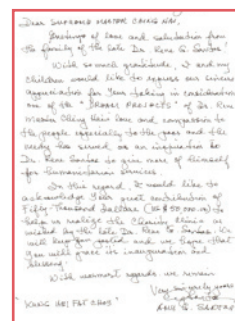 Dear SUPREME MASTER CHING HAI,
Greetings of love and salutation from
the family of the late Dr. Rene G. Santos!
With so much gratitude, I and my
children would like to express our sincere
appreciation for your taking in consideration
one of the "DREAM PROJECTS" of Dr. Rene
Master Ching Hai's love and compassion to
the people especially to the poor and the
needy has served as an inspiration to
Dr. Rene Santos to give more of himself
for humanitarian services.
In this regard, I would like to
acknowledge your great contribution of
Fifty Thousand Dollars (US $50,000.00) to
help us realize the Charity Clinic as
wished by the late Dr. Rene G. Santos. We
will keep you posted and we hope that
you will grace its inauguration and
blessing.
With warmest regards we remain
Very sincerely yours
G. SANTOS
"KUNG HEI FAT CHOY"